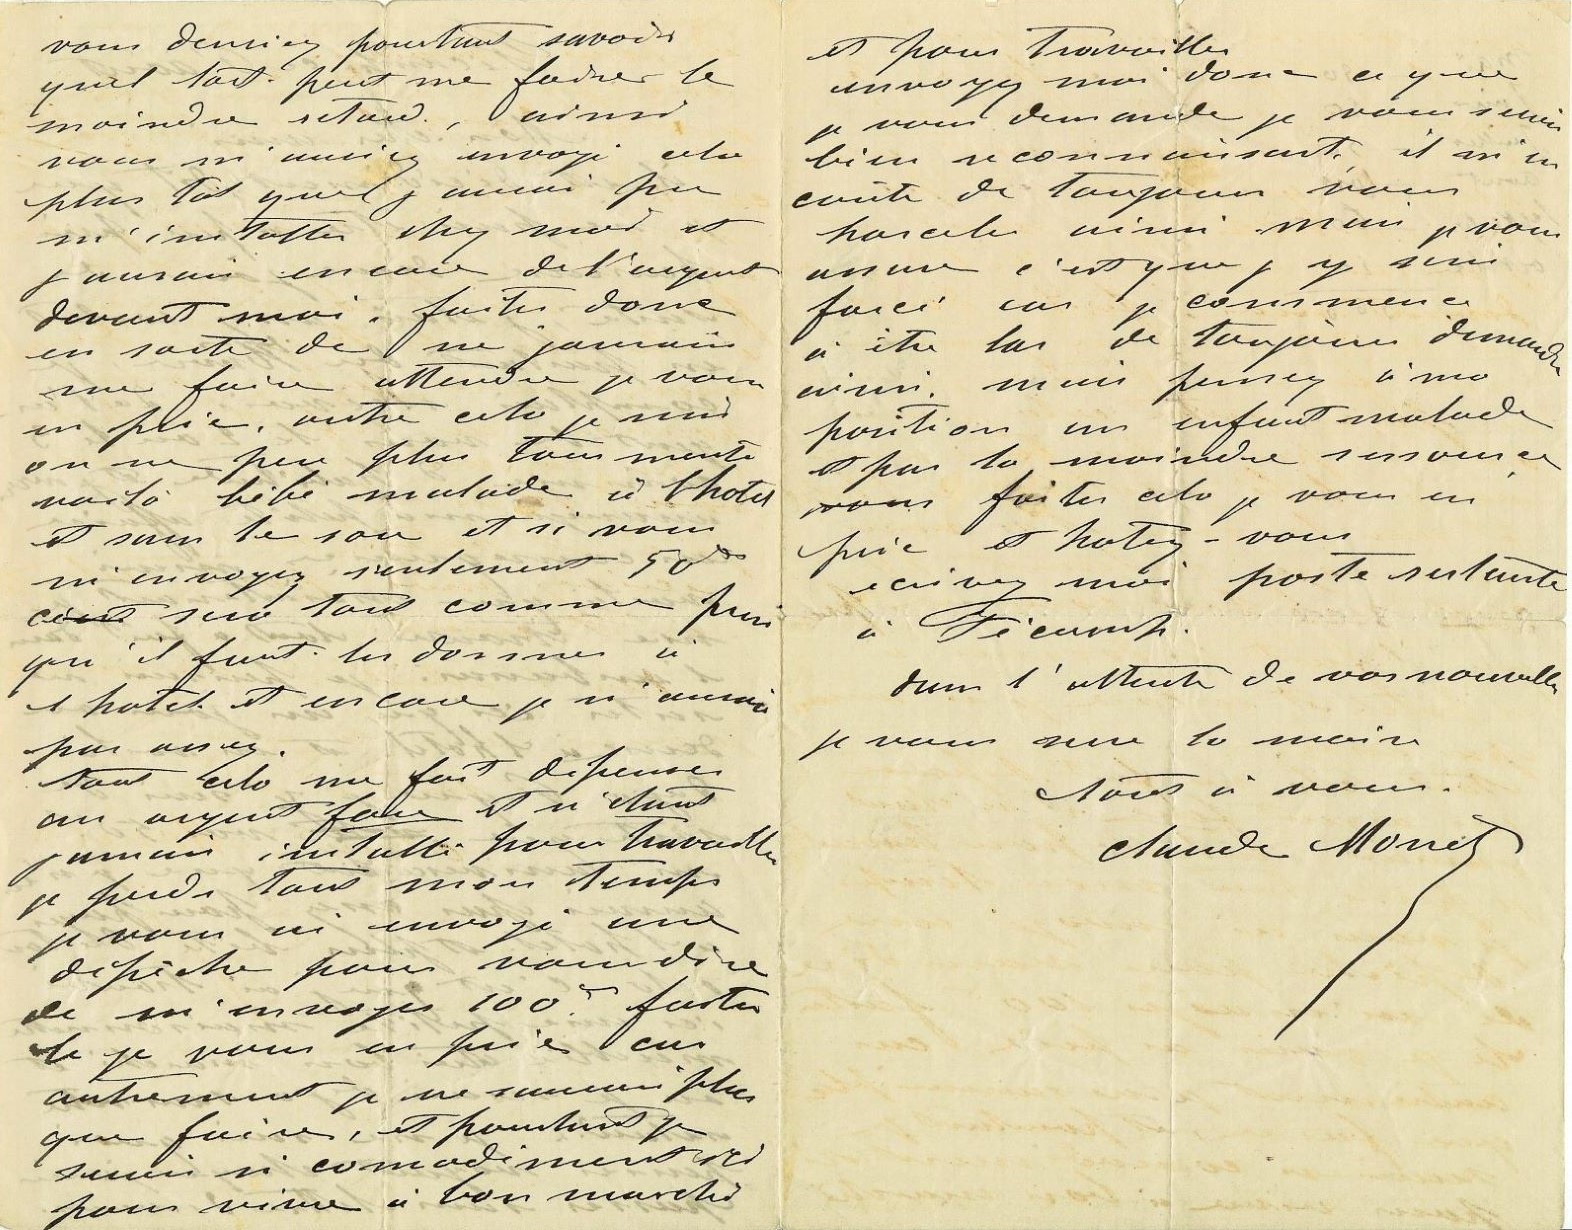 vous devriez pourtant savoir
quel tort peut me faire le
moindre retard, ainsi
vous m'auriez envoyé cela
plus tôt que j'aurai pu
m'installer chez moi et
j'aurais encore de l'argent
devant moi. faites donc
en sorte de ne jamais
me faire attendre je vous
en prie, outre cela je suis
on ne peu plus tourmenté
voilà bébé malade à l'hotel
et sans le sou et si vous
m'envoyez seulement 50
sera tout comme puis
qu'il faut les donner à
l'hotel et encore je n'aurai
pas assez.
tout cela me fait depenser
un argent fou et n'étant
jamais installé pour travailler
je perds tout mon temps
je vous ai envoyé une
dépêche pour vous dire
de m'envoyer 100f. faites
le je vous en prie car
autrement je ne saurais plus
que faire, et pourtant je
serais si comodément ici
pour vivre à bon marché
et pour travailler
envoyez moi donc ce que
je vous demande je vous serai
bien reconnaissant, il m'en
coûte de toujours vous
harceler ainsi mais je vous
assure c'est que j'y suis
forcé car je commence
à être las de toujours demander
ainsi. mais pensez à ma
position un enfant malade
et pas la moindre ressource
vous faites cela je vous en
prie et hatez-vous
ecrivez moi poste restante
à Fécamp.
dans l'attente de vos nouvelles
je vous serre la main
tout à vous.
Claude Monet